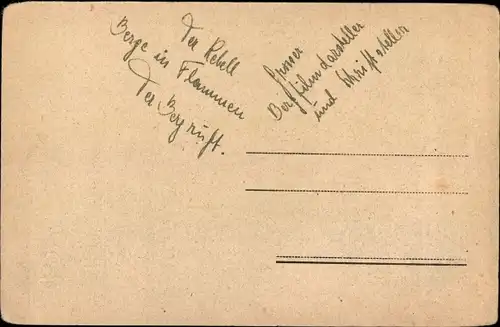 Der Rebell
Berge in Flammen
Der Berg ruft.
Grosser
Bergfilmdarsteller
und Schriftsteller